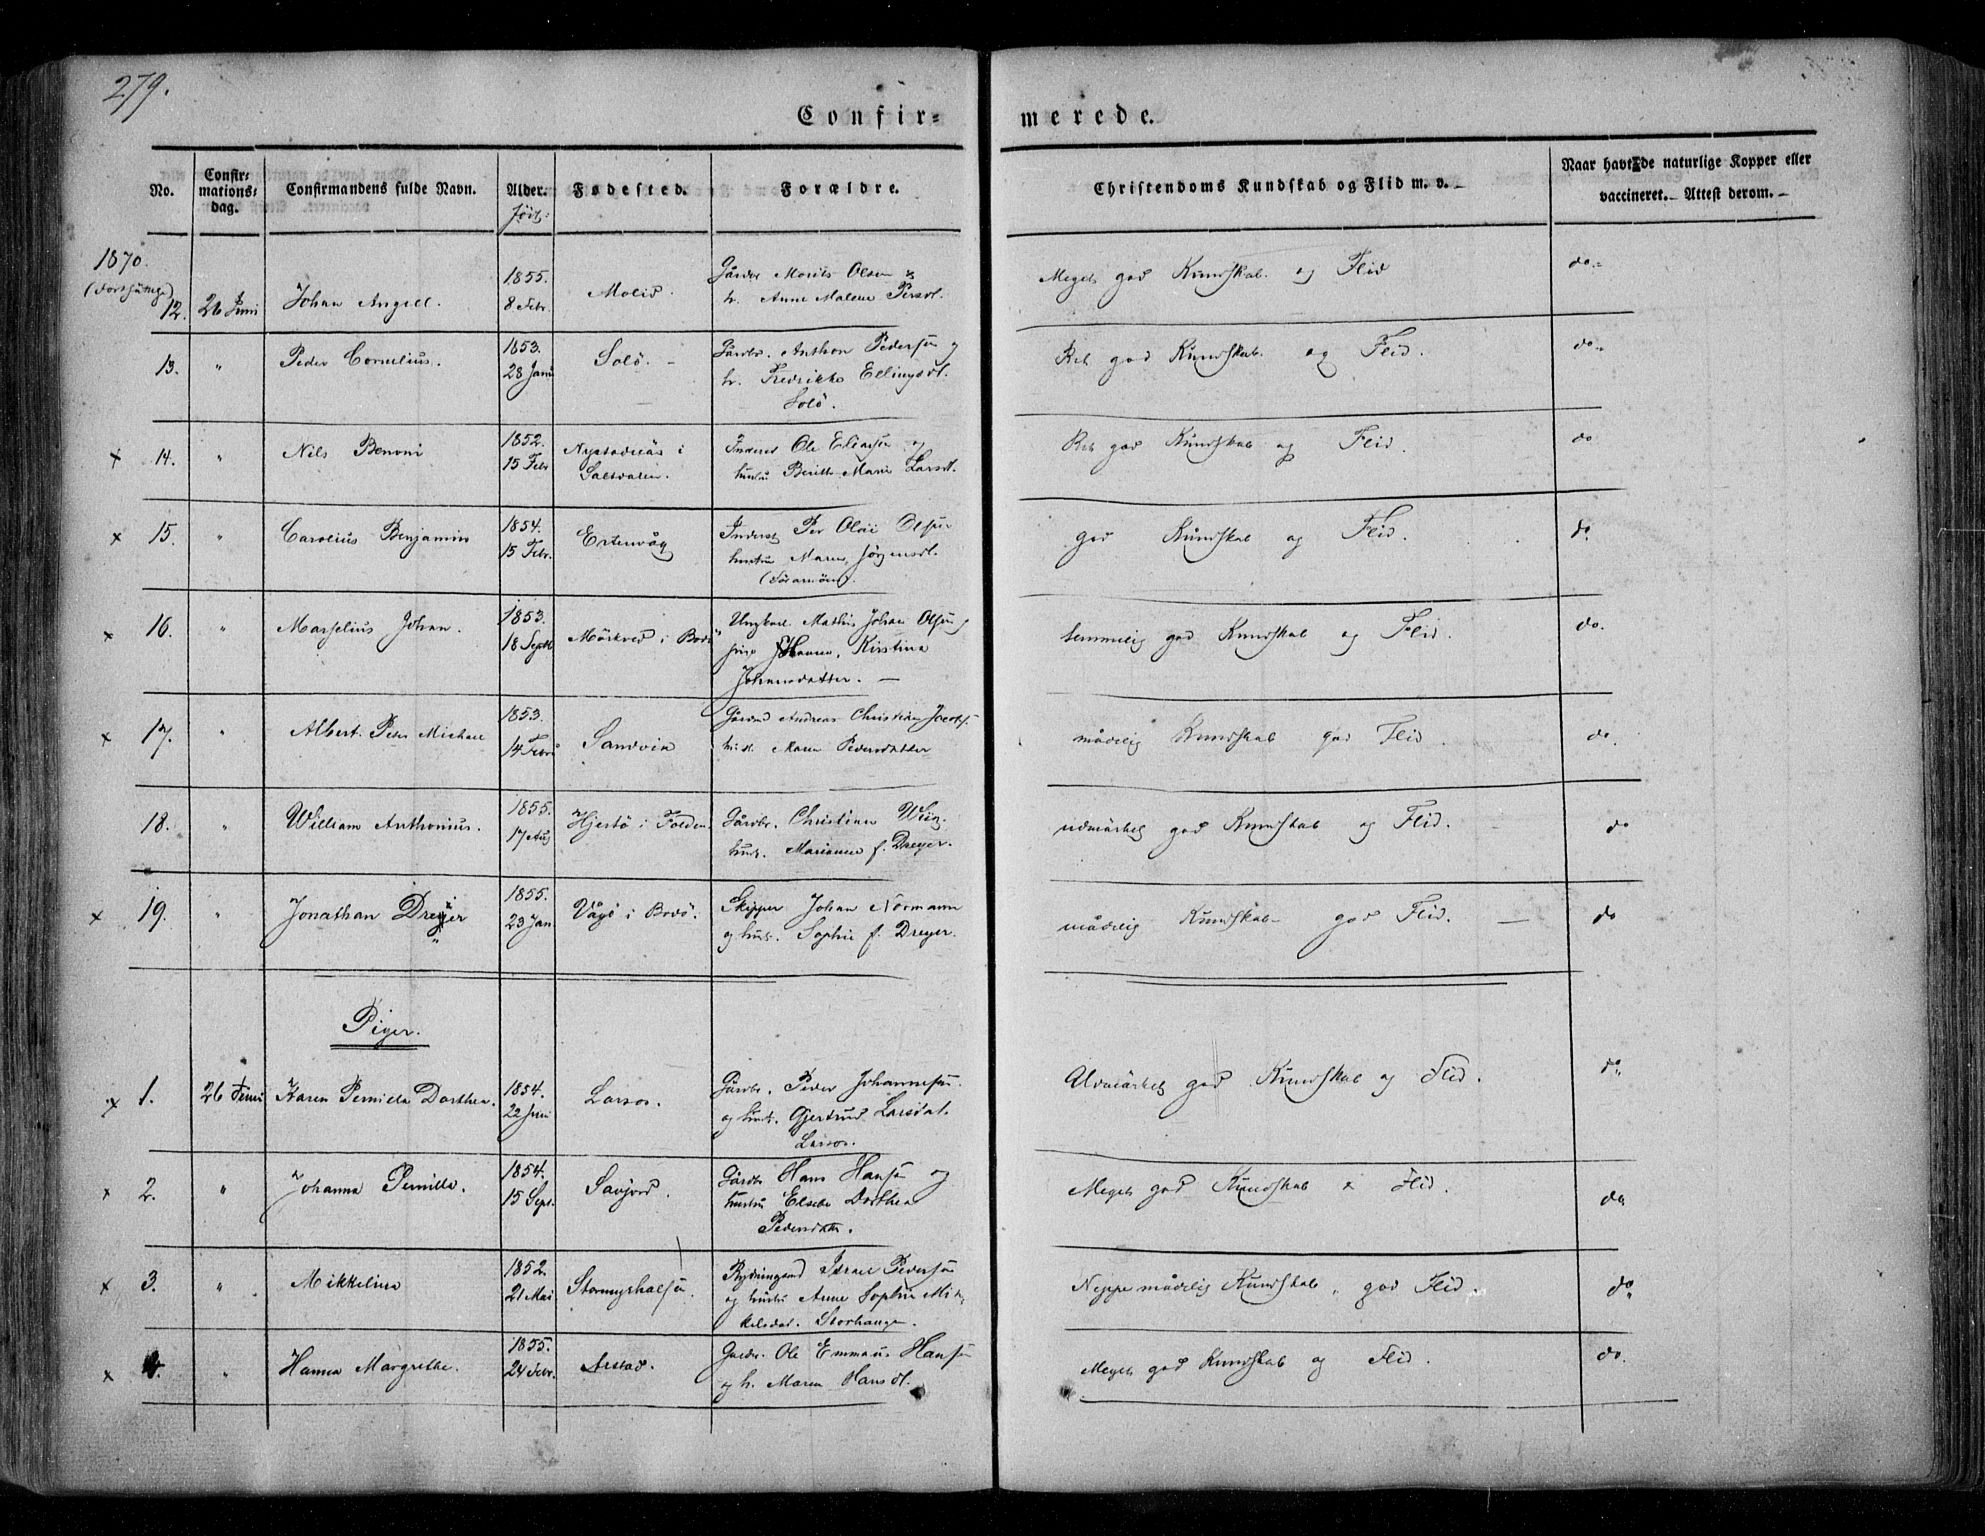 279.
Confir- merede.
No. Confir- mations- dag. Confirmandens fulde Navn. Alder. Fødested. Forældre. Christendoms Kundskab og Flid m. v. Naar havt de naturlige Kopper eller vaccineret. Attest derom.
1870.
12. 26 Juni Johan Angell. 1855. 8 Febr. Gårdbr Morits Olsen &
h. Anne Malene Persdt. Meget god Kundskab og Flid do
13. " Peder Cornelius. 1853. 28 Janu Solö. Gårdbr. Anthon Pedersen og
h. Fredrikke Ellingsdt.
Solö. Ret god Kundskab og Flid. do
x 14. " Nils Benoni 1852. 15 Febr i
Saltdalen. Inderst Ole Eliasen og
hustru Berith Marie Larsdt. Ret god Kundskab og Flid. do
x 15. " Carolius Benjamin 1854. 15 Febr. Estenvåg Inderst Per Olai Olsen
hustru Maren Jörgensdt. god Kundskab og Flid. do
x 16. " Marselius Johan. 1853. 18 Septb Mörkved i Bodö Ungkarl Mathis Johan Olsen og
pige Hanna Kirstina
Johannsdatter. temmelig god Kundskab og Flid. do.
x 17. " Albert Peter Michael 1853. 14 Febru Sandvik Gårdmd Andreas Christian Jacobs.
hust. Maren Pedersdatter mådelig Kundskab god Flid. do.
18. " William Anthonius. 1855. 17 Aug Hjertö i Folden. Gårdbr. Christian Weig.
hust. Marianne f. Dreyer. udmärket god Kundskab og Flid. do
x 19. " Jonathan Dreyer 1855. 23 Jan Vågö i Bodö. Skipper Johan Normann
og hust. Sophie f. Dreyer. mådelig Kundskab god Flid. do
Piger.
x 1. 26 Juni Karen Pernilla Dorthea. 1854. 22 Juni Larsos. Gårdbr. Peder Johannesen.
og hust. Gjertrud Larsdat.
Larsos. Udmärket god Kundskab og Flid. do
x 2. " Johanna Pernille. 1854. 15 Sept. Savjord. Gårdbr Hans Hansen og
hustru Elsebe Dorthea
Pedersdatter. Meget god Kundskab & Flid. do
x 3. " Mikkelina 1852. 21 Mai Rydningsmd Israel Pedersen
og hustru Anne Sophie Mik-
kelsdat. Storhaugen. Neppe mådelig Kundskab, god Flid. do
x 4. " Hanna Margrethe. 1855. 24 Febr. Arstad. Gardbr. Ole Emmaus Hansen
og h. Maren Hansdt. Meget god Kundskab og Flid. do.